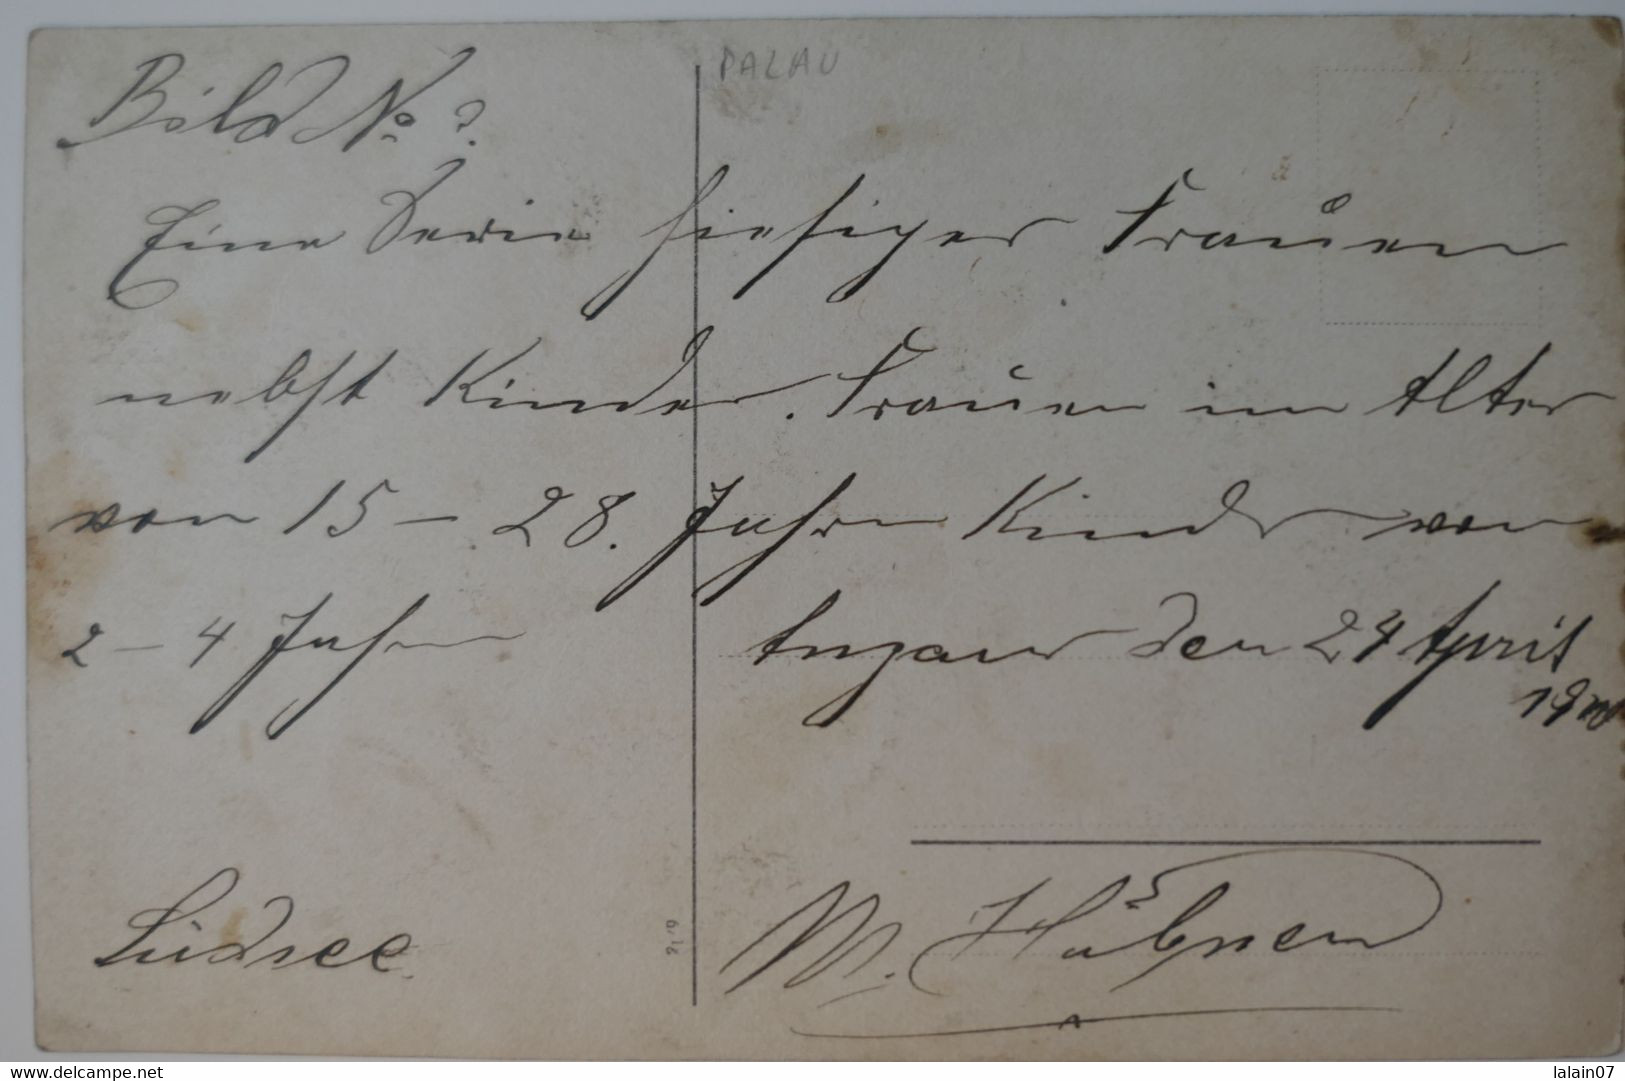 PALAU
Bild No ?
Eine Serie hiesiger Frauen
nebst Kinder. Frauen im Alter
von 15 – 28. Jahre Kinder von
2 – 4 Jahre
Angaur den 24 April
Südsee
M. Hübner
www.delcampe.net
lalain07